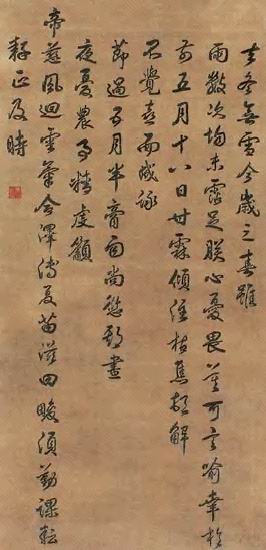 去冬無雪今歲之春雖
雨數次均未霑足朕心憂畏莫可言喻幸於
五月十八日甘霖傾注枯焦頓解
不覺喜而成詠
節過五月半膏雨尚愁遲晝
夜憂農事精虔籲
帝慈風迴雲葉合澤溥夏苗滋田畯須勤課耘
耔正及時